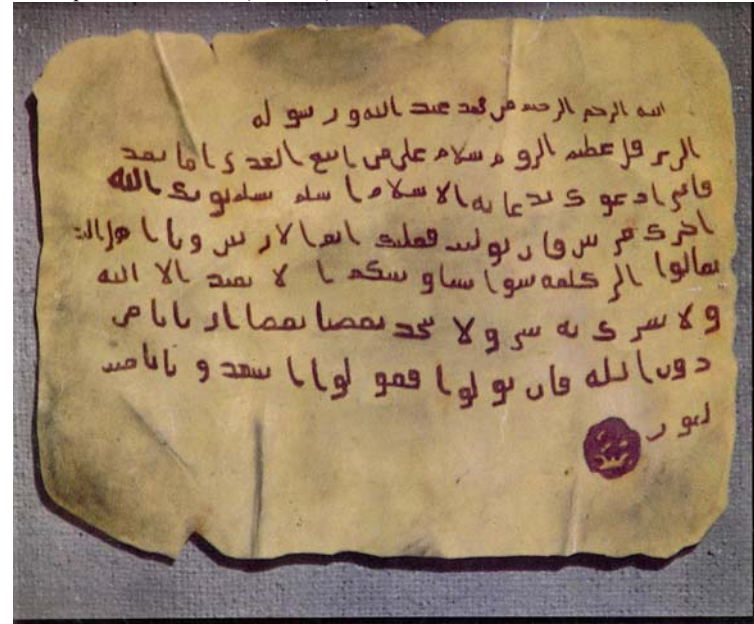 الله الرحمن الرحيم من محمد عبد الله و رسو له
الى هرقل عظيم الروم سلام على من اتبع الهدى اما بعد
فانى ادعوك بدعاية الاسلام اسلم تسلم يوتك الله
اجرك مرتين فان توليت فعليك اثم الاريسين ويا اهل
تعالوا الى كلمة سوا بيننا وبينكم ا لا نعبد الا الله
ولا نشرك به شى ولا يتخذ بعضنا بعضا اربابا من
دون الله فان تولوا فقولوا اشهدوا بانا مس
لمون